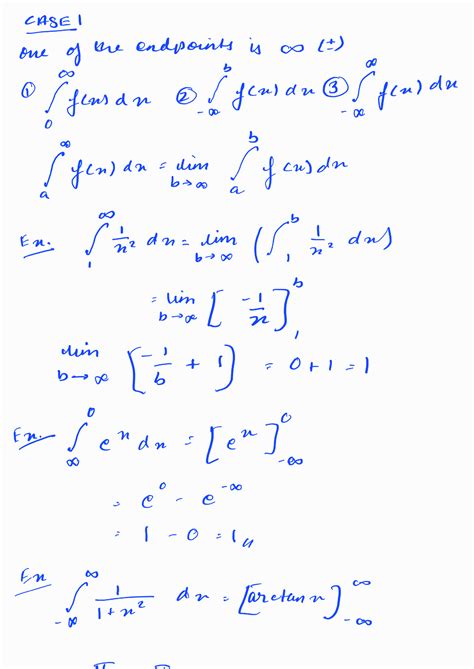 CASE 1
one of the endpoints is ∞ (±)
① ∫₀^∞ f(x) dx ② ∫_{-∞}^b f(x) dx ③ ∫_{-∞}^∞ f(x) dx
∫_a^∞ f(x) dx = lim_{b→∞} ∫_a^b f(x) dx
Ex. ∫₁^∞ 1/x² dx = lim_{b→∞} (∫₁^b 1/x² dx)
= lim_{b→∞} [-1/x]₁^b
lim_{b→∞} [-1/b + 1] = 0+1 = 1
Ex. ∫_∞^0 e^x dx = [e^x]_{-∞}^0
= e^0 - e^{-∞}
= 1 - 0 = 1,,
Ex ∫_{-∞}^∞ 1/(1+x²) dx = [arctan x]_{-∞}^∞